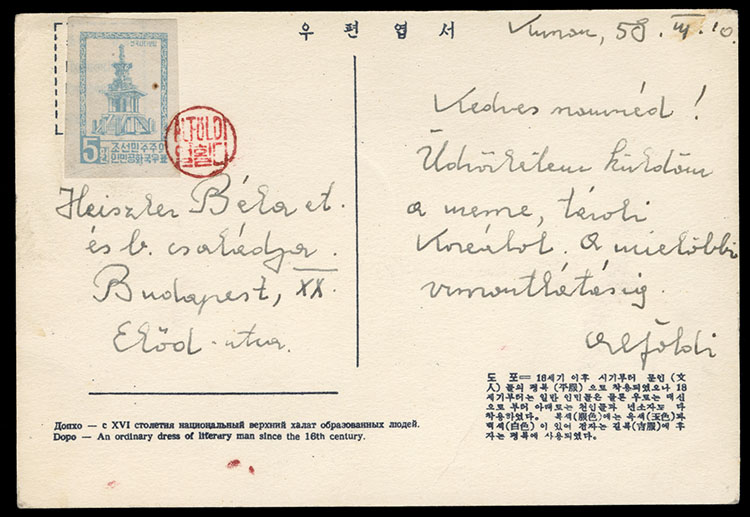 우 편 엽 서
5
조선민주주의
인민공화국우표
ALFÖLDI
Heiszler Béla et.
és b. családja.
Budapest, XX.
Előd-utca.
58. III. 10.
Kedves
Üdvözletem küldöm
a messze, távoli
Koreából. A mielőbbi
viszontlátásig.
Alföldi
Допхо — с XVI столетия национальный верхний халат образованных людей.
Dopo — An ordinary dress of literary man since the 16th century.
도 포＝ 16세기 이후 시기부터 문인 (文
人) 들의 평복 (平服) 으로 착용되였으나 18
세기부터는 일반 인민들은 물론 우로는 대신
으로 부터 아래로는 천인들과 넌소자도 다
착용하였다. 복색(服色)에는 옥색(玉色)과
백색(白色) 이 있어 전자는 길복(吉服)에 후
자는 평복에 사용되였다.